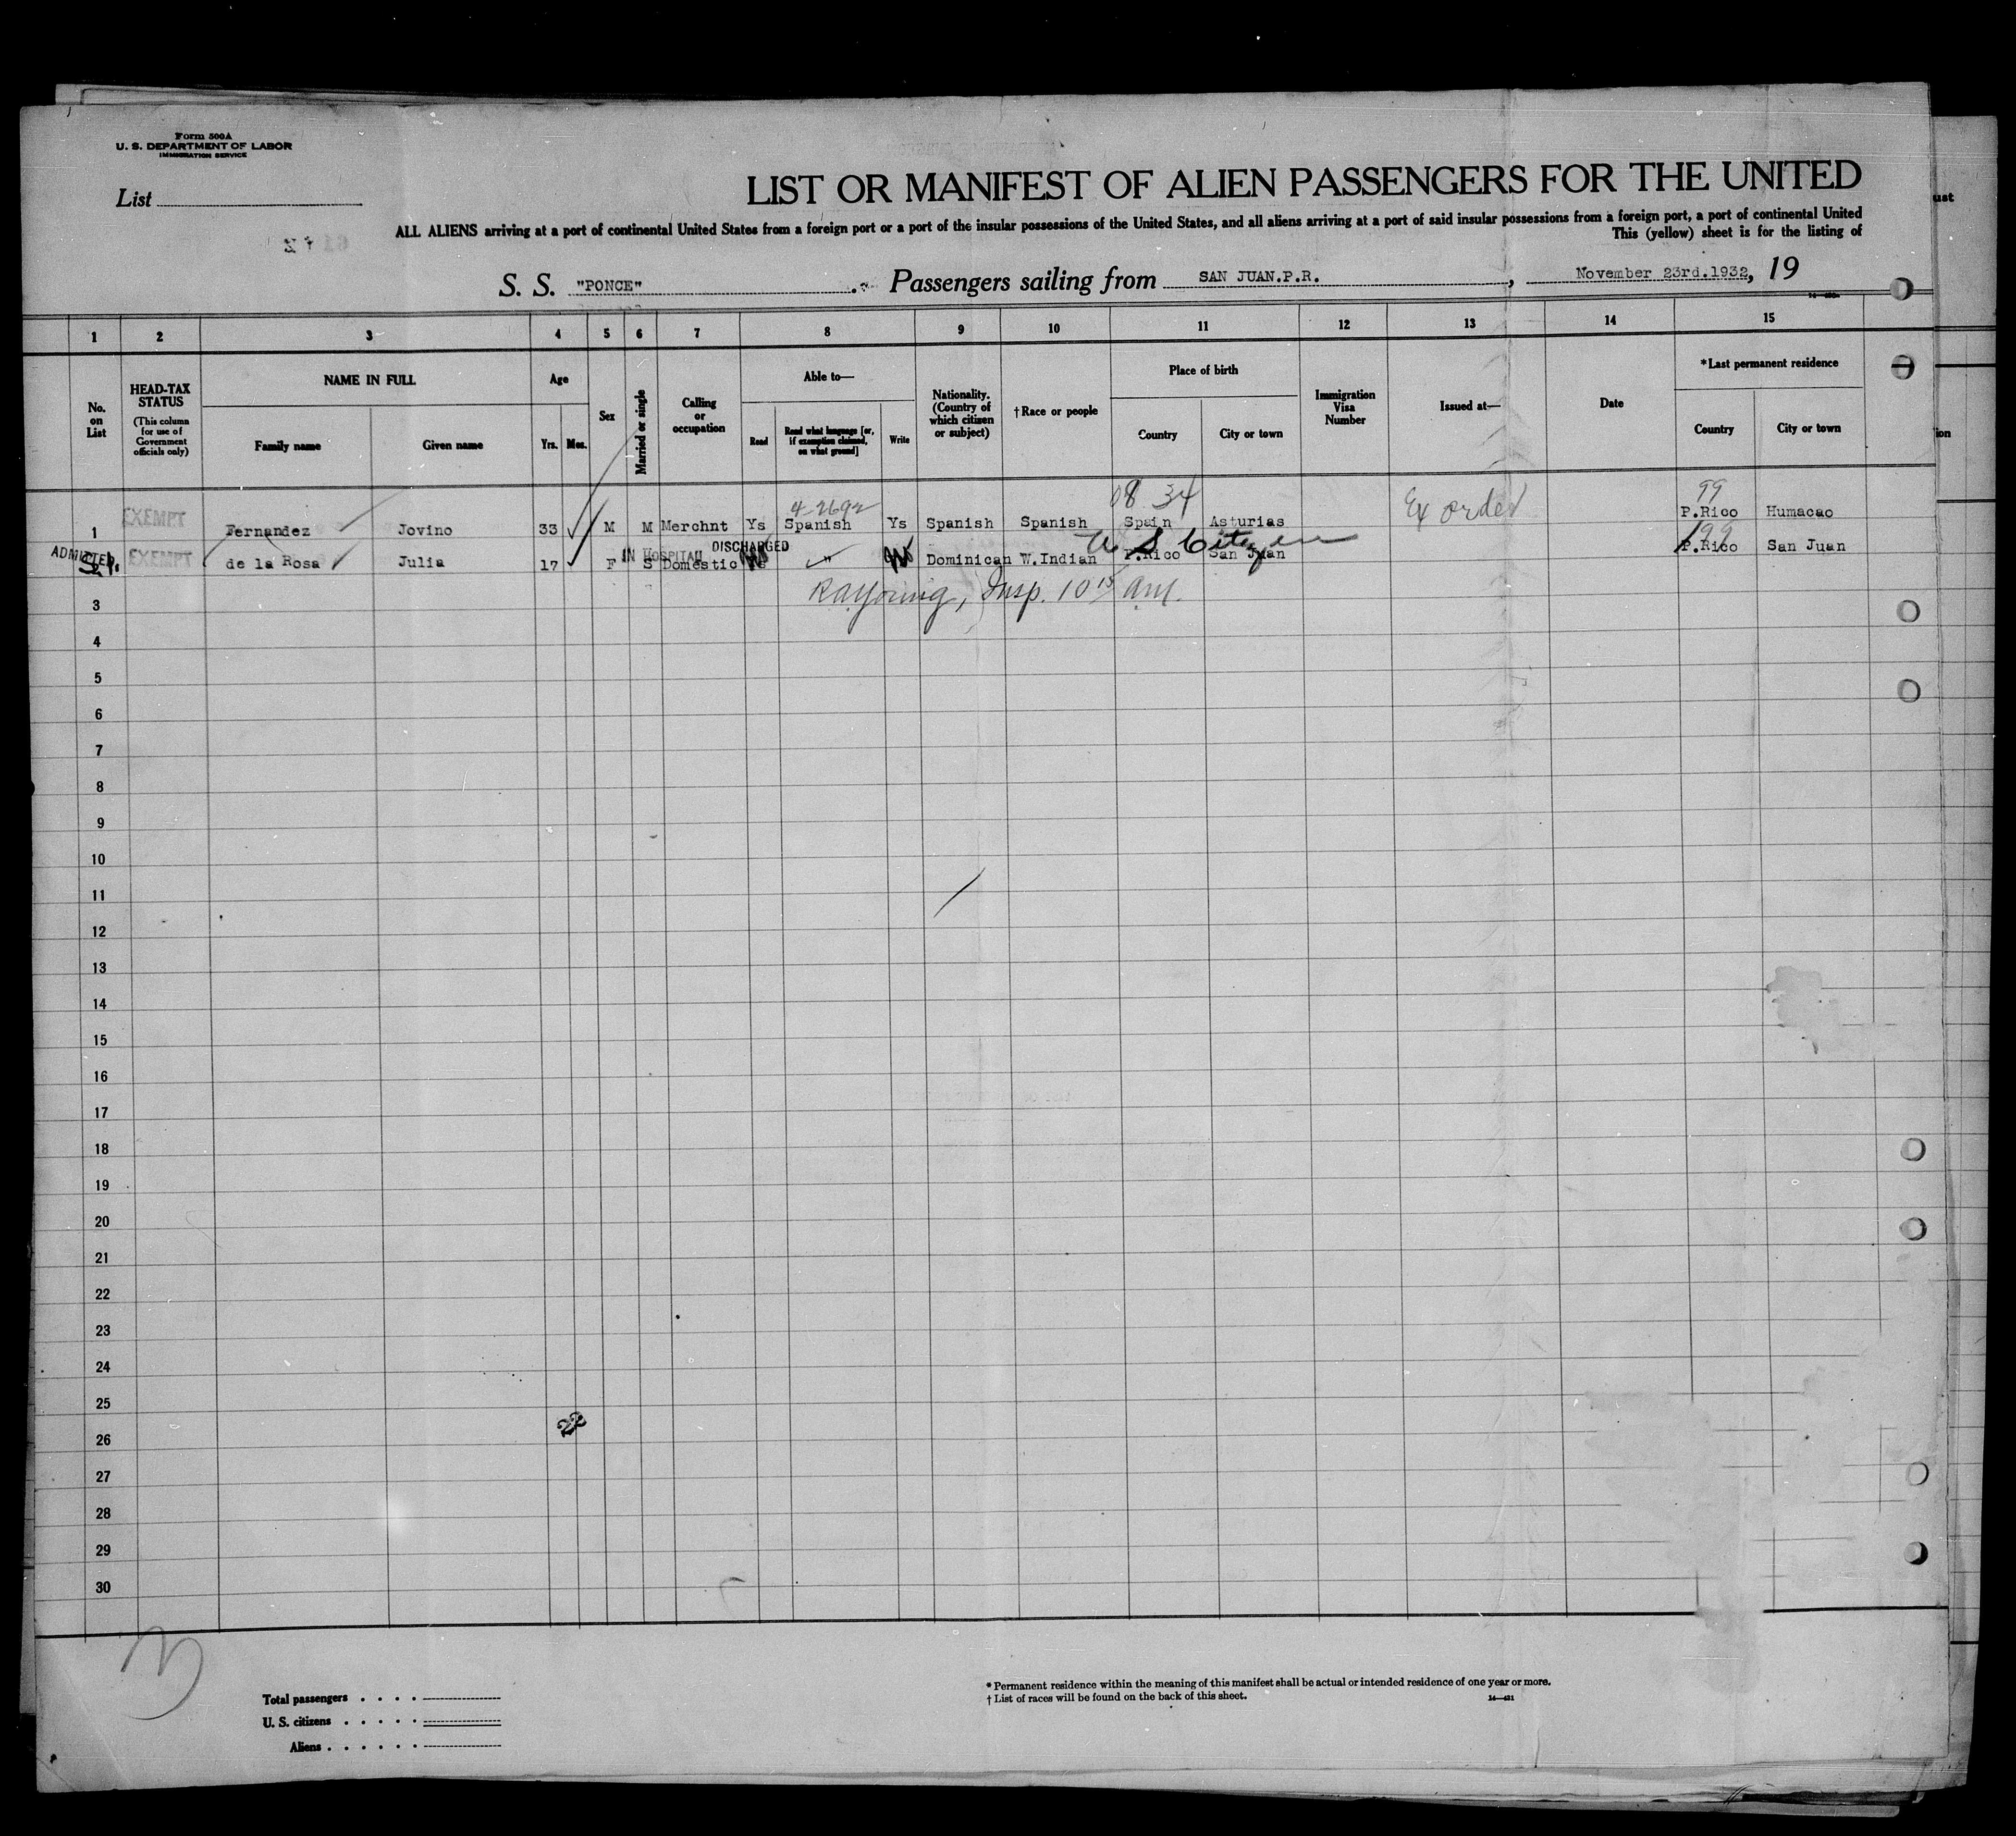 Form 500A
U. S. DEPARTMENT OF LABOR
IMMIGRATION SERVICE
List
LIST OR MANIFEST OF ALIEN PASSENGERS FOR THE UNITED
ALL ALIENS arriving at a port of continental United States from a foreign port or a port of the insular possessions of the United States, and all aliens arriving at a port of said insular possessions from a foreign port, a port of continental United
This (yellow) sheet is for the listing of
S. S. "PONCE" Passengers sailing from SAN JUAN.P.R. , November 23rd.1932, 19
1 2 3 4 5 6 7 8 9 10 11 12 13 14 15
No. on List
HEAD-TAX STATUS
(This column for use of Government officials only)
NAME IN FULL
Family name
Given name
Age
Yrs. Mos.
Sex
Married or single
Calling or occupation
Able to—
Read
Read what language [or, if exemption claimed, on what ground]
Write
Nationality. (Country of which citizen or subject)
†Race or people
Place of birth
Country
City or town
Immigration Visa Number
Issued at—
Date
*Last permanent residence
Country
City or town
4-2692 08 34 Ex order 99
1 EXEMPT Fernandez Jovino 33 M M Merchnt Ys Spanish Ys Spanish Spanish Spain Asturias P.Rico Humacao
IN HOSPITAL DISCHARGED U S Citizen 199
ADMITTED EXEMPT de la Rosa Julia 17 F S Domestic " Dominican W.Indian P.Rico San Juan P.Rico San Juan
3 RAYoung, Insp. 10 15 am.
4
5
6
7
8
9
10
11
12
13
14
15
16
17
18
19
20
21
22
23
24
25
22
26
27
28
29
30
Total passengers
U. S. citizens
Aliens
* Permanent residence within the meaning of this manifest shall be actual or intended residence of one year or more.
† List of races will be found on the back of this sheet.
14—421
ust
ion